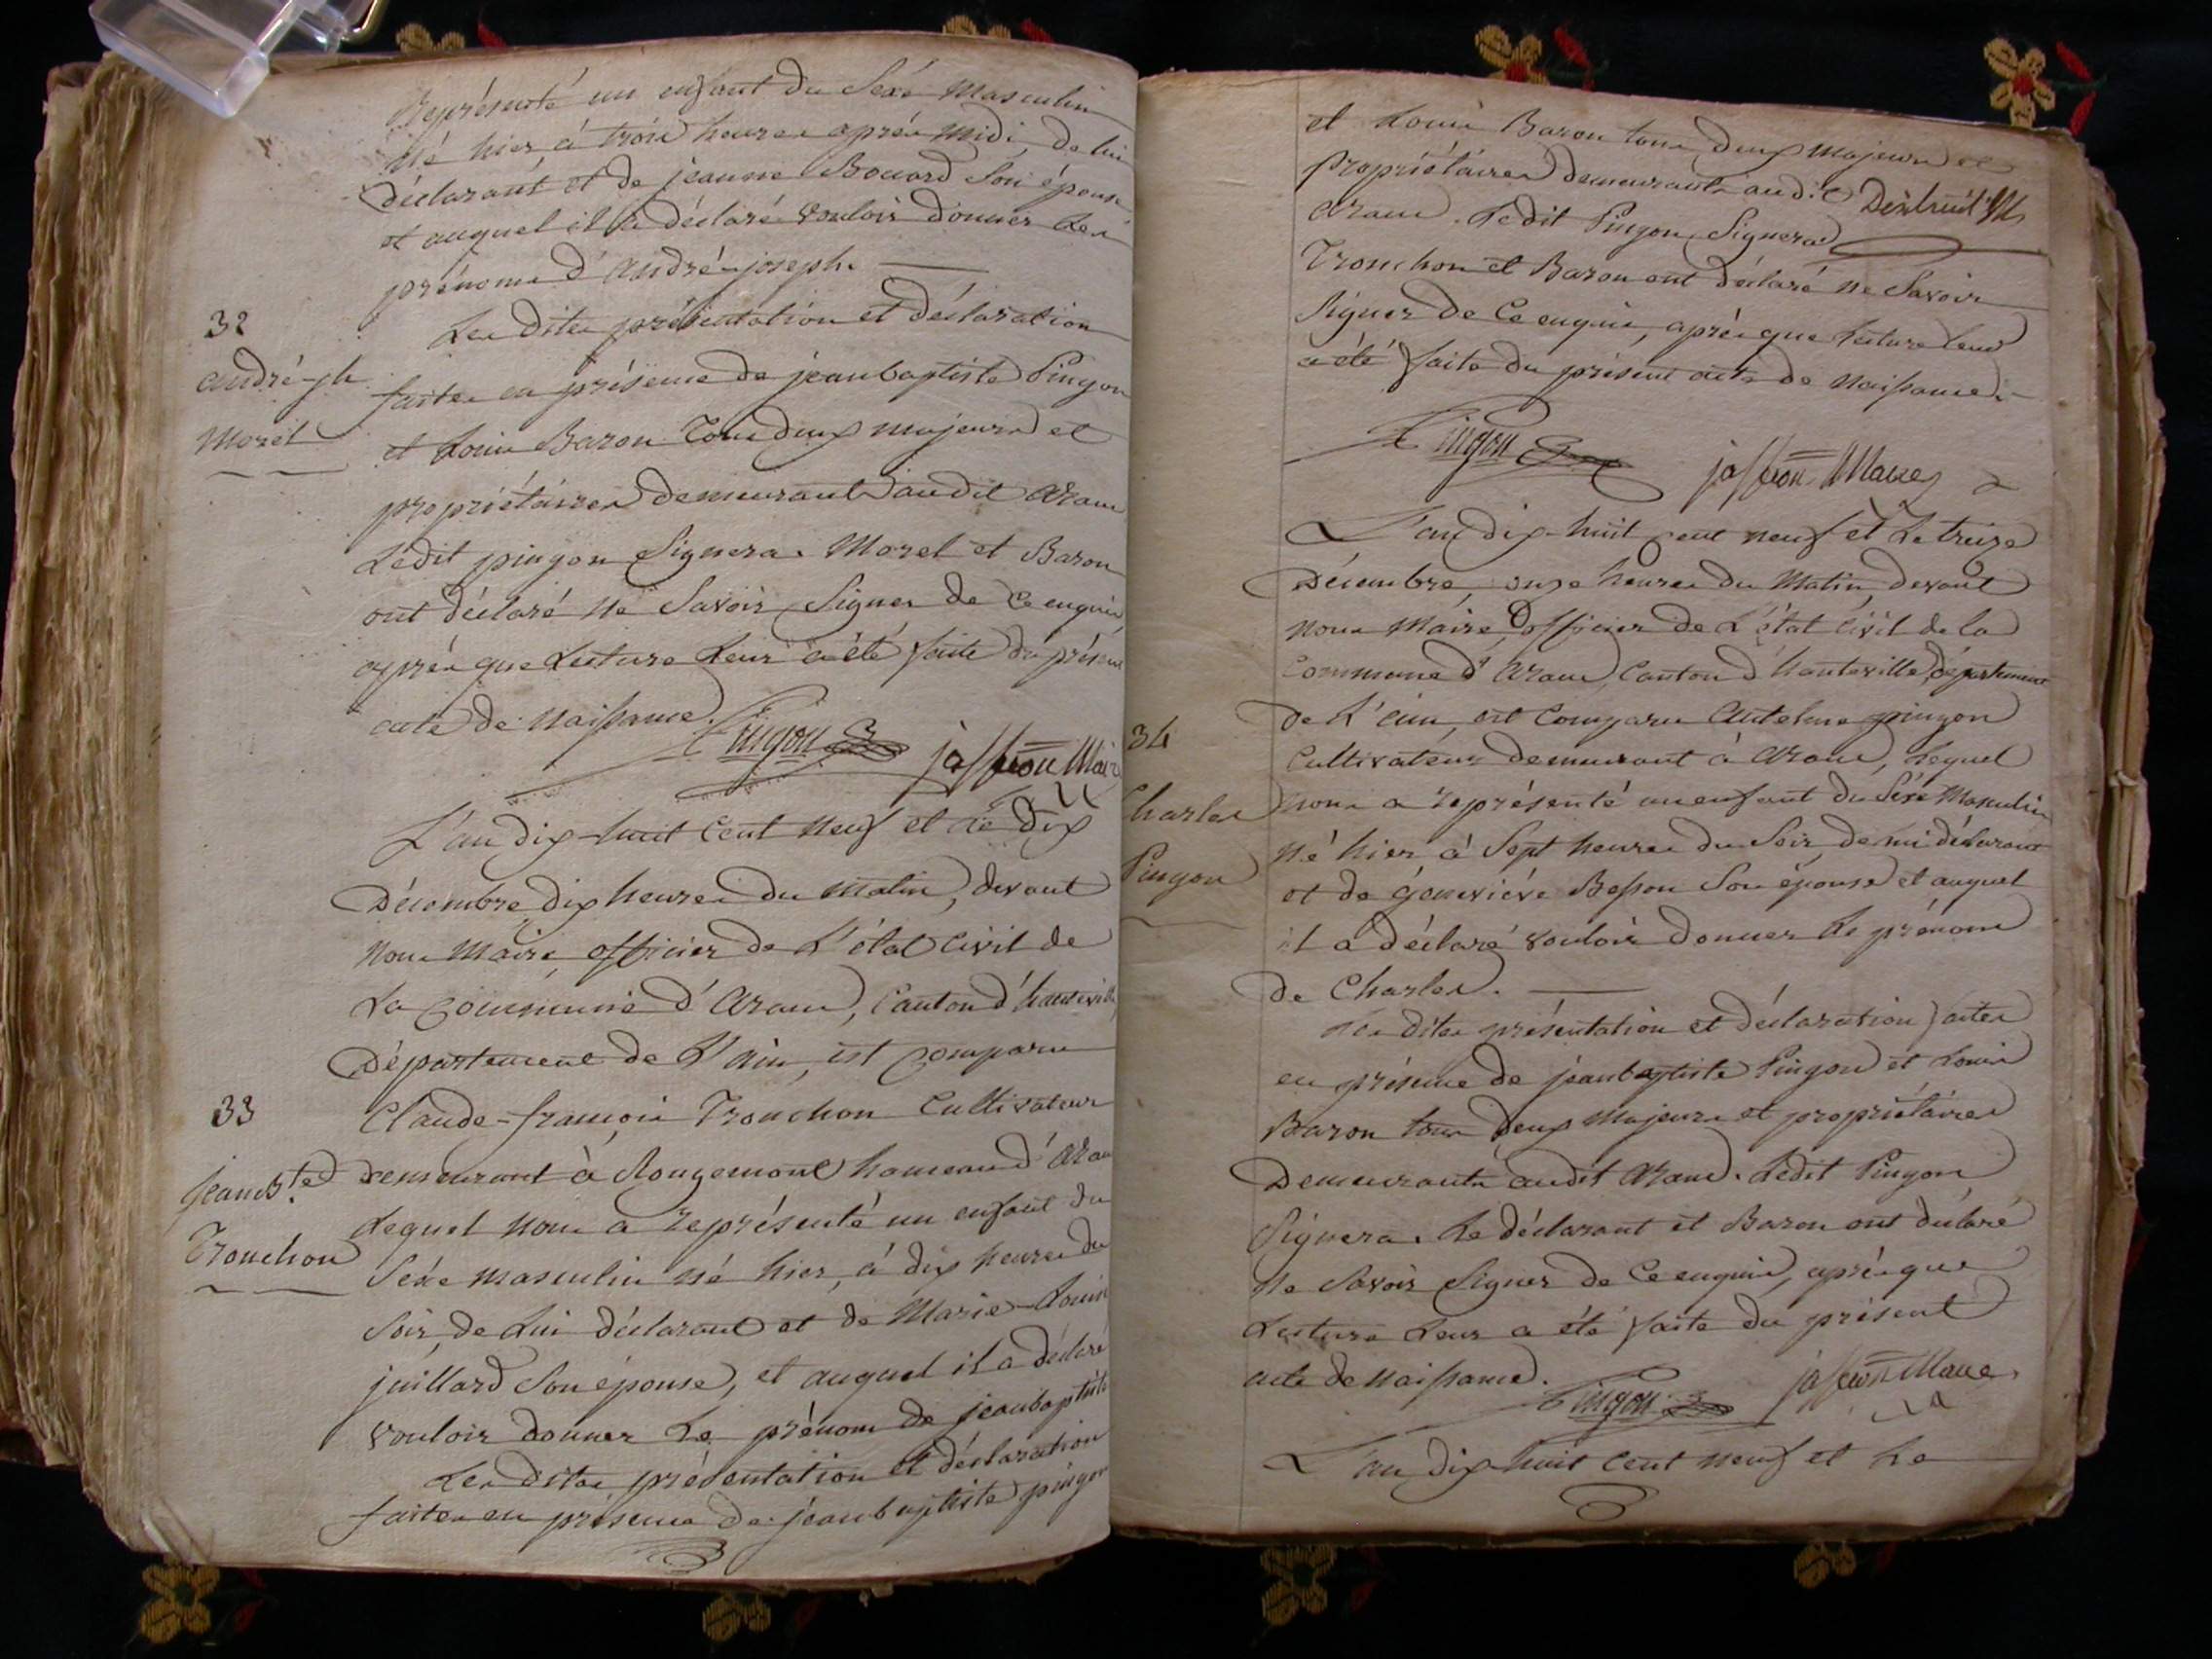 Représenté un enfant du Séxe Masculin
né hier à trois heures après midi, de lui
déclarant et de jeanne Bouard son épouse
et auquel il a déclaré vouloir donner les
prénoms d'andré-joseph.
32
andré-jh
Morel
Les dites présentation et déclaration
faites en présence de jeanbaptiste Pingon
et Louis Baron tous deux majeurs et
propriétaires demeurants audit Aranc
Ledit pingon Signera. Morel et Baron
ont déclaré ne Savoir Signer de ce enquis
après que Lecture Leur a été faite du présent
acte de naissance.
Pingon
jasseron Maire
L'an dix-huit Cent neuf et Le dix
Décembre, dix heures du matin, devant
nous Maire, officier de L'état Civil de
La Commune d'Aranc, Canton d'hauteville
Département de L'ain, est Comparu
33
jean Bte
Tronchon
Claude-françois Tronchon Cultivateur
demeurant à Rougemont hameau d'Aranc
Lequel nous a représenté un enfant du
Séxe masculin né hier, à dix heures du
Soir, de Lui déclarant et de Marie-Louise
juillard Son épouse, et auquel il a déclaré
vouloir donner Le prénom de jeanbaptiste
Les dites présentation et déclaration
faites en présence de jeanbaptiste pingon
et Louis Baron tous deux majeurs et
Propriétaires demeurants audit
Aranc. Ledit Pingon Signera
Tronchon et Baron ont déclaré ne Savoir
Signer de Ce enquis, après que Lecture Leur
a été faite du présent acte de naissance.
Pingon
jasseron Maire
L'an dix-huit cent neuf et Le treize
Décembre, onze heures du Matin, devant
nous Maire, officier de L'état civil de la
Commune d'Aranc, Canton d'hauteville, département
de L'ain, est Comparu Antelme pingon
34
Charles
Pingon
Cultivateur demeurant à Aranc, Lequel
nous a représenté un enfant du Séxe Masculin
né hier à Sept heures du Soir, de lui déclarant
et de geneviève Besson Son épouse et auquel
il a déclaré vouloir donner Le prénom
de Charles.
Les dites présentation et déclaration faites
en présence de jeanbaptiste Pingon et Louis
Baron tous deux Majeurs et propriétaires
Demeurants audit Aranc. Ledit Pingon
Signera. Le déclarant et Baron ont déclaré
ne Savoir Signer de Ce enquis, après que
Lecture Leur a été faite du présent
acte de naissance.
Pingon
jasseron Maire
L'an dix-huit Cent neuf et Le